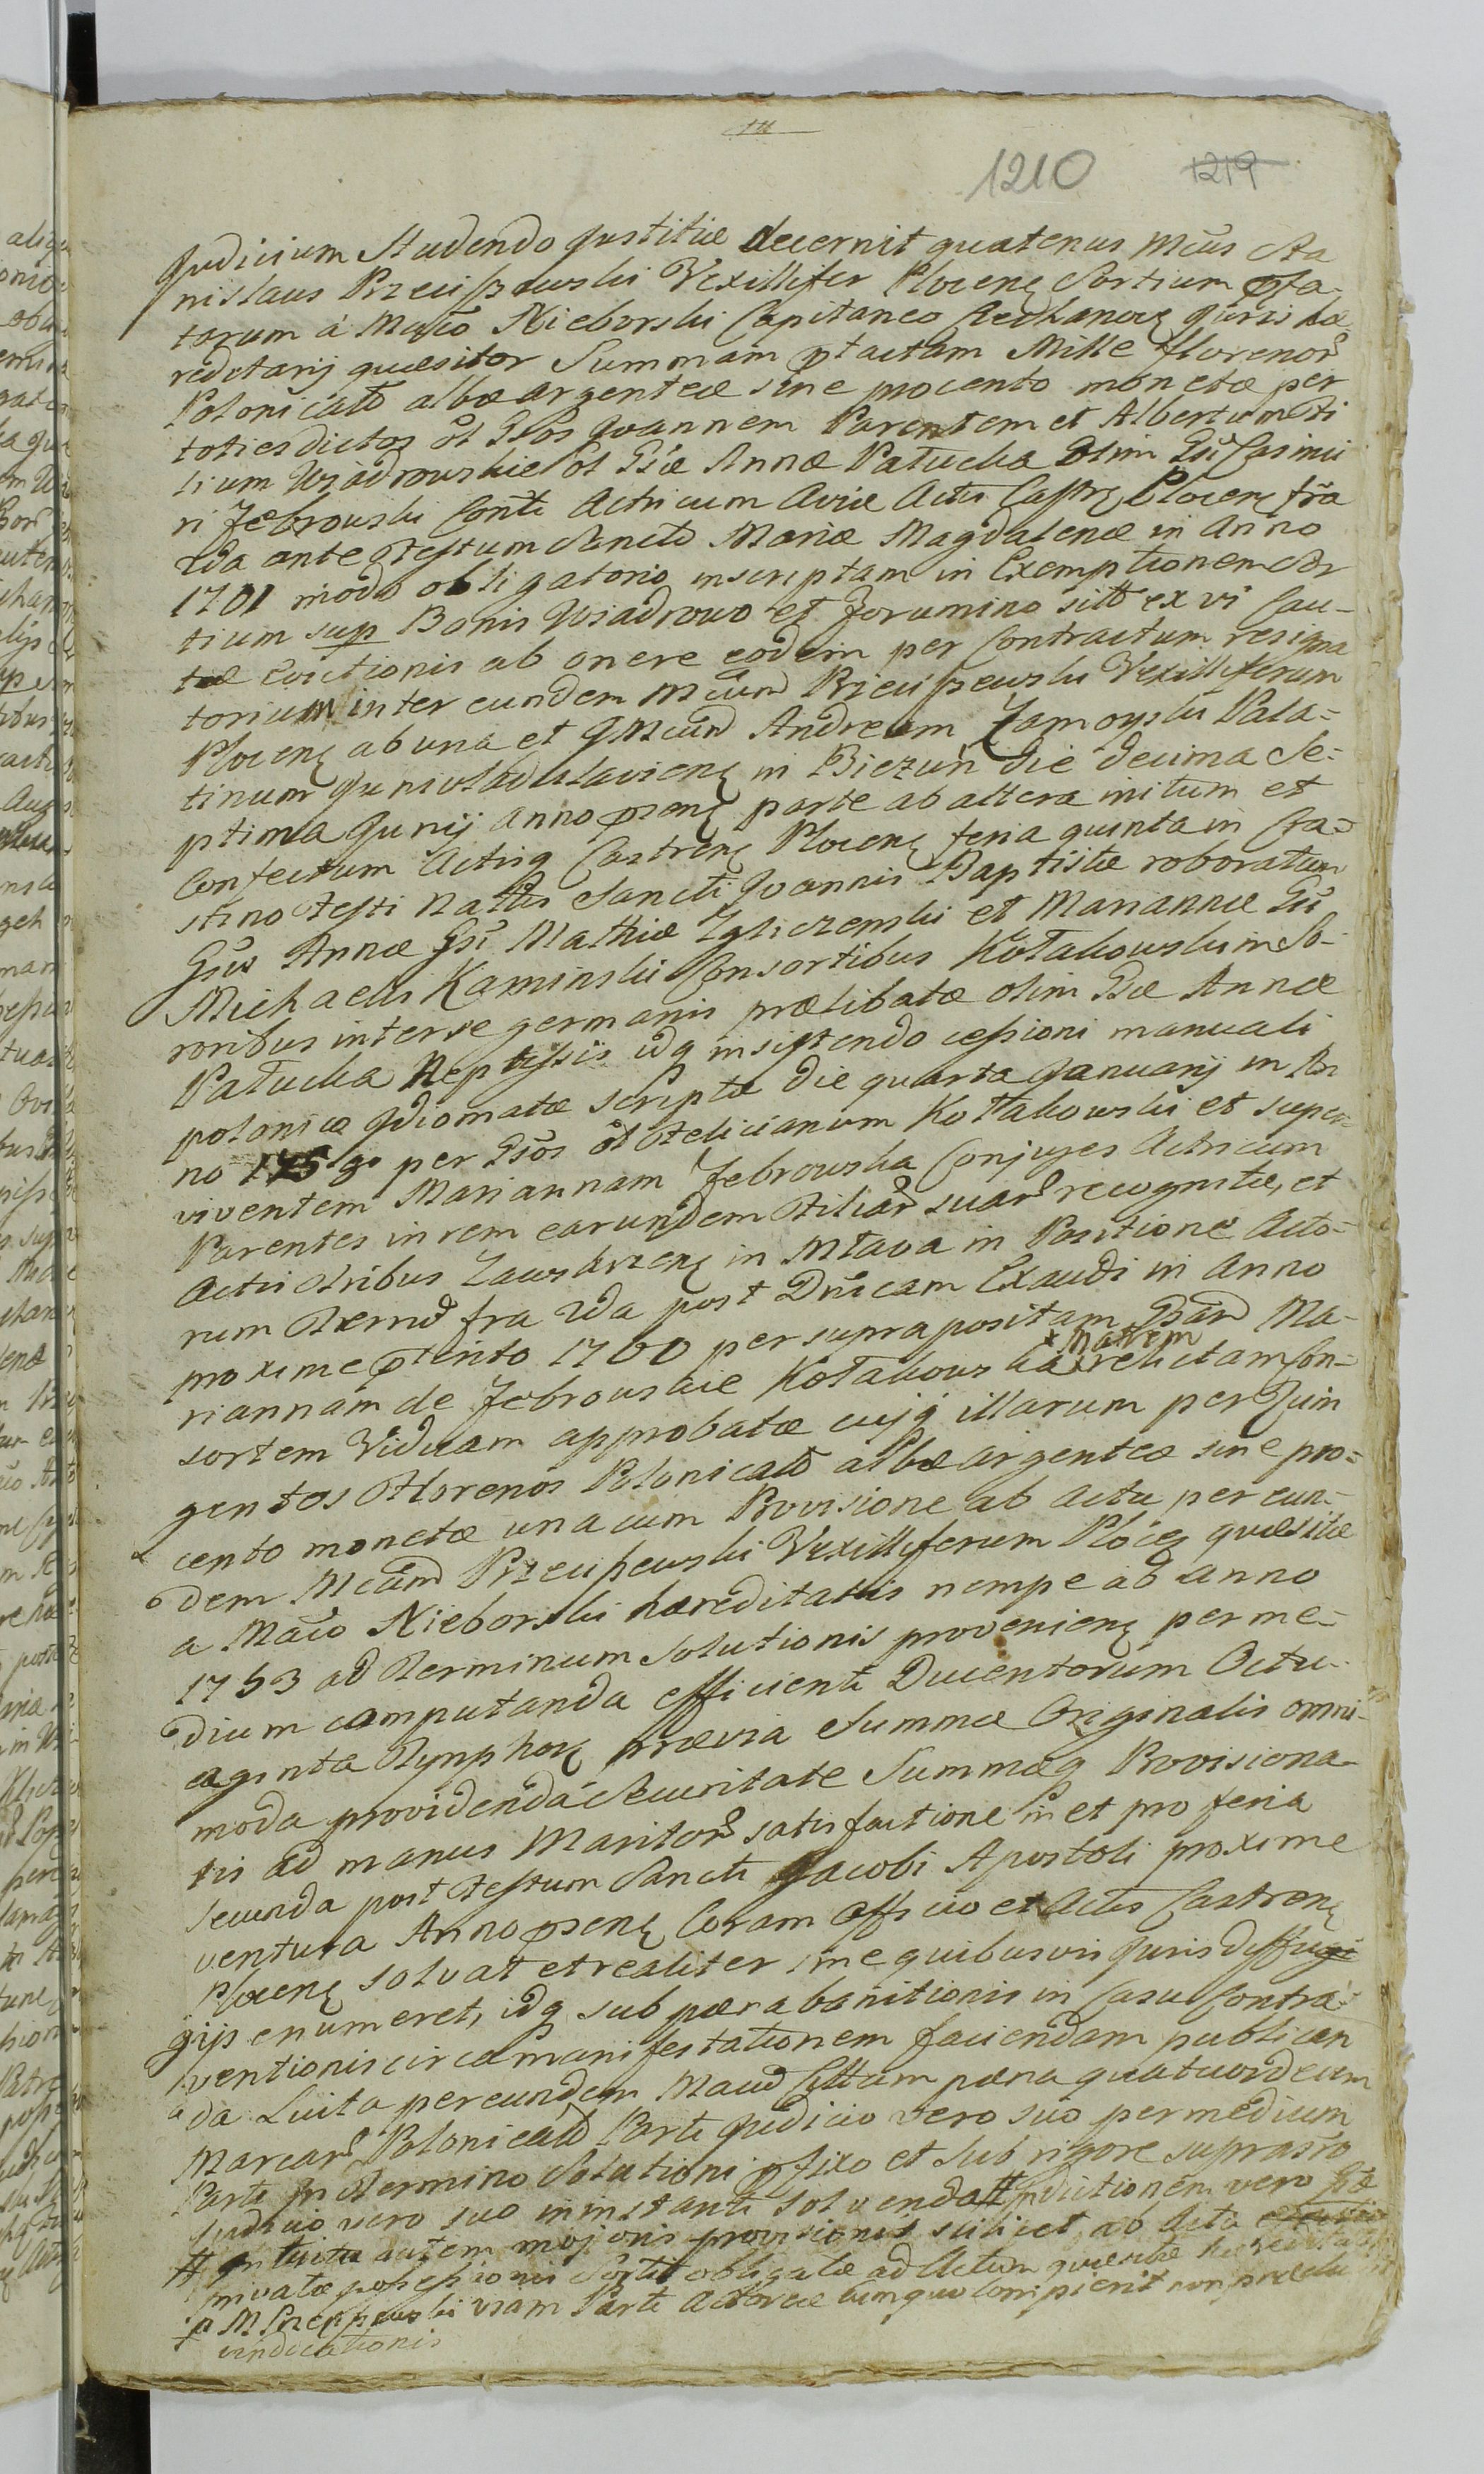 1210 1219
Judicium Studendo Justitiæ decernit quatenus Mcūs Sta
nislaus Przeciszewski Vexillifer Plocenę Sortium
torum á Maco Nieborski Capitaneo Ciechanovę Juris hæ
reditarij quæsitor Summam Mille florenor
Polonicald albæ argenteæ sine procento monetæ per
toties dictos ol Gsos Joannem Parentem et Albertum Fi
lium Wiadrowskie ol Gsæ Annæ Patucka Olim Gsi Casimi
ri Zebrowski Conti Actricum Aviæ Actis Castrę Plocenę fria
2da ante Festum Sanctæ Mariæ Magdalenæ in Anno
1701 modo obligatorio inscriptam in Exemptionem Sor
tium sup Bonis Wiadrowo et Zorumino sitt ex vi Cau-
tæ Evictionis ab onere eodem per Contractum resigna
torium inter eundem Mcum Przeciszewski Vexilliferum
Plocenę ab una et Andream Zamoyski Pala=
tinum Junivladislavienę in Biezuń die decima Se=
ptima Junij anno psenę parte ab altera initum et
Confectum Actisq Castrenę Plocenę feria quinta in Cra=
stino Festi Nattis Sancti Joannis Baptistæ roboratum
Gsis Annæ Gsi Mathiæ Zgliczenski et Mariannæ Gsi
Michaelis Kaminski Consortibus Kołakowskim So-
roribus inter se germanis prælibatæ olim Gsæ Annæ
Patucka Neptissis idq insistendo cessioni manuali
polonicæ Idiomatæ scriptæ die quarta Januarij in An
no 1758 per Gsos ol Felicianum Kołłakowski et super
viventem Mariannam Zebrowska Conjuges Actricum
Parentes in rem earundem Filiar suar recognitæ, et
Actis Zawskrzenę in Mława in Positione Acto=
rum fra 2da post Dnicam Exaudi in Anno
proxime 1760 per suprapositam Gsam Ma-
riannam de Zebrowskie Kołakowska x Matrem relictam Con=
sortem Viduam approbatæ cujq illarum per Quin
gentos Florenos Polonicald albæ argenteæ sine pro=
cento monetæ una cum Provisione ab Actu per eun-
dem Mcum Przeciszewski Vexilliferum Plocę quæsitæ
a Maco Nieborski hæreditatis nempe ad anno
1753 ad Terminum Solutionis provenienę per me-
dium computanda efficienti Ducentorum Octu-
aginta Tynphorę prævia Summæ Originalis omni-
moda providenda Securitate Summæq Provisiona-
tis ad manus Maritor satisfactione in et pro feria
Secunda post Festum Sancti Jacobi Apostoli proxime
ventura Anno psenę Coram Officio et Actis Castrenę
Plocenę solvat et realiter sine quibusvis Juris diffugi
gijs enumeret, idq sub pæna banitionis in Casu Contra-
ventionis circa manifestationem faciendam publican
da Luita per eundem Maud pæna quatuordecim
Marcar Polonicald Parti Judicio vero suo per medium
Parti in Termino Solutioni pfixo et sub rigore
Judicio vero suo in instanti Solvenda vero
# Intuitu autem majoris provisionis scilicet ab Actu
privatæ possessionis Sortis obligatæ ad Actum quæsitæ hæreditatis
p M Przeciszewski viam Parti Actoreæ cum quo
vindicationis